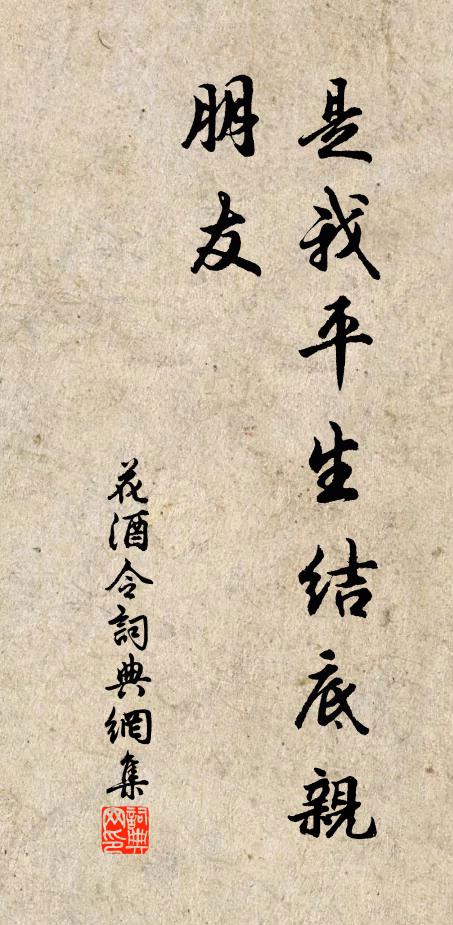 是我平生結底親
朋友
花酒令詞典網集
詞典
网印